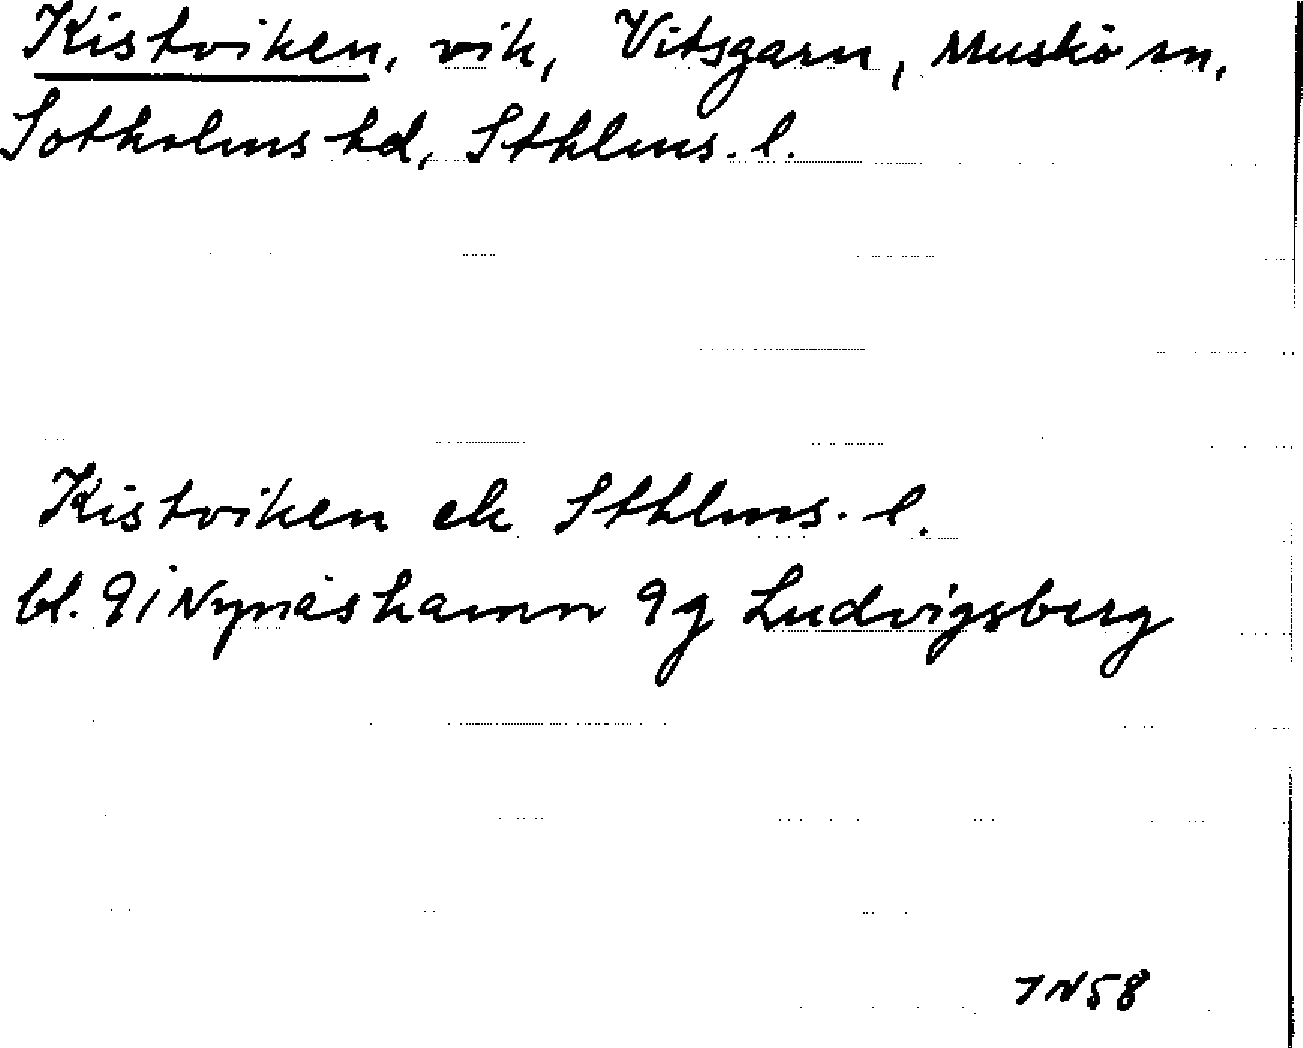 Kistviken, vik, Vitsgarn, Muskö sn,
Sotholms hd, Sthlms. l.
Kistviken ek Sthlms. l.
bl. 9i Nynäshamn 9g Ludvigsberg
7N58